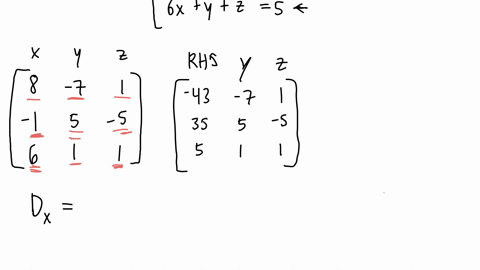 6x + y + z = 5 ←
x y z
8 -7 1
-1 5 -5
6 1 1
RHS y z
-43 -7 1
35 5 -5
5 1 1
Dx =